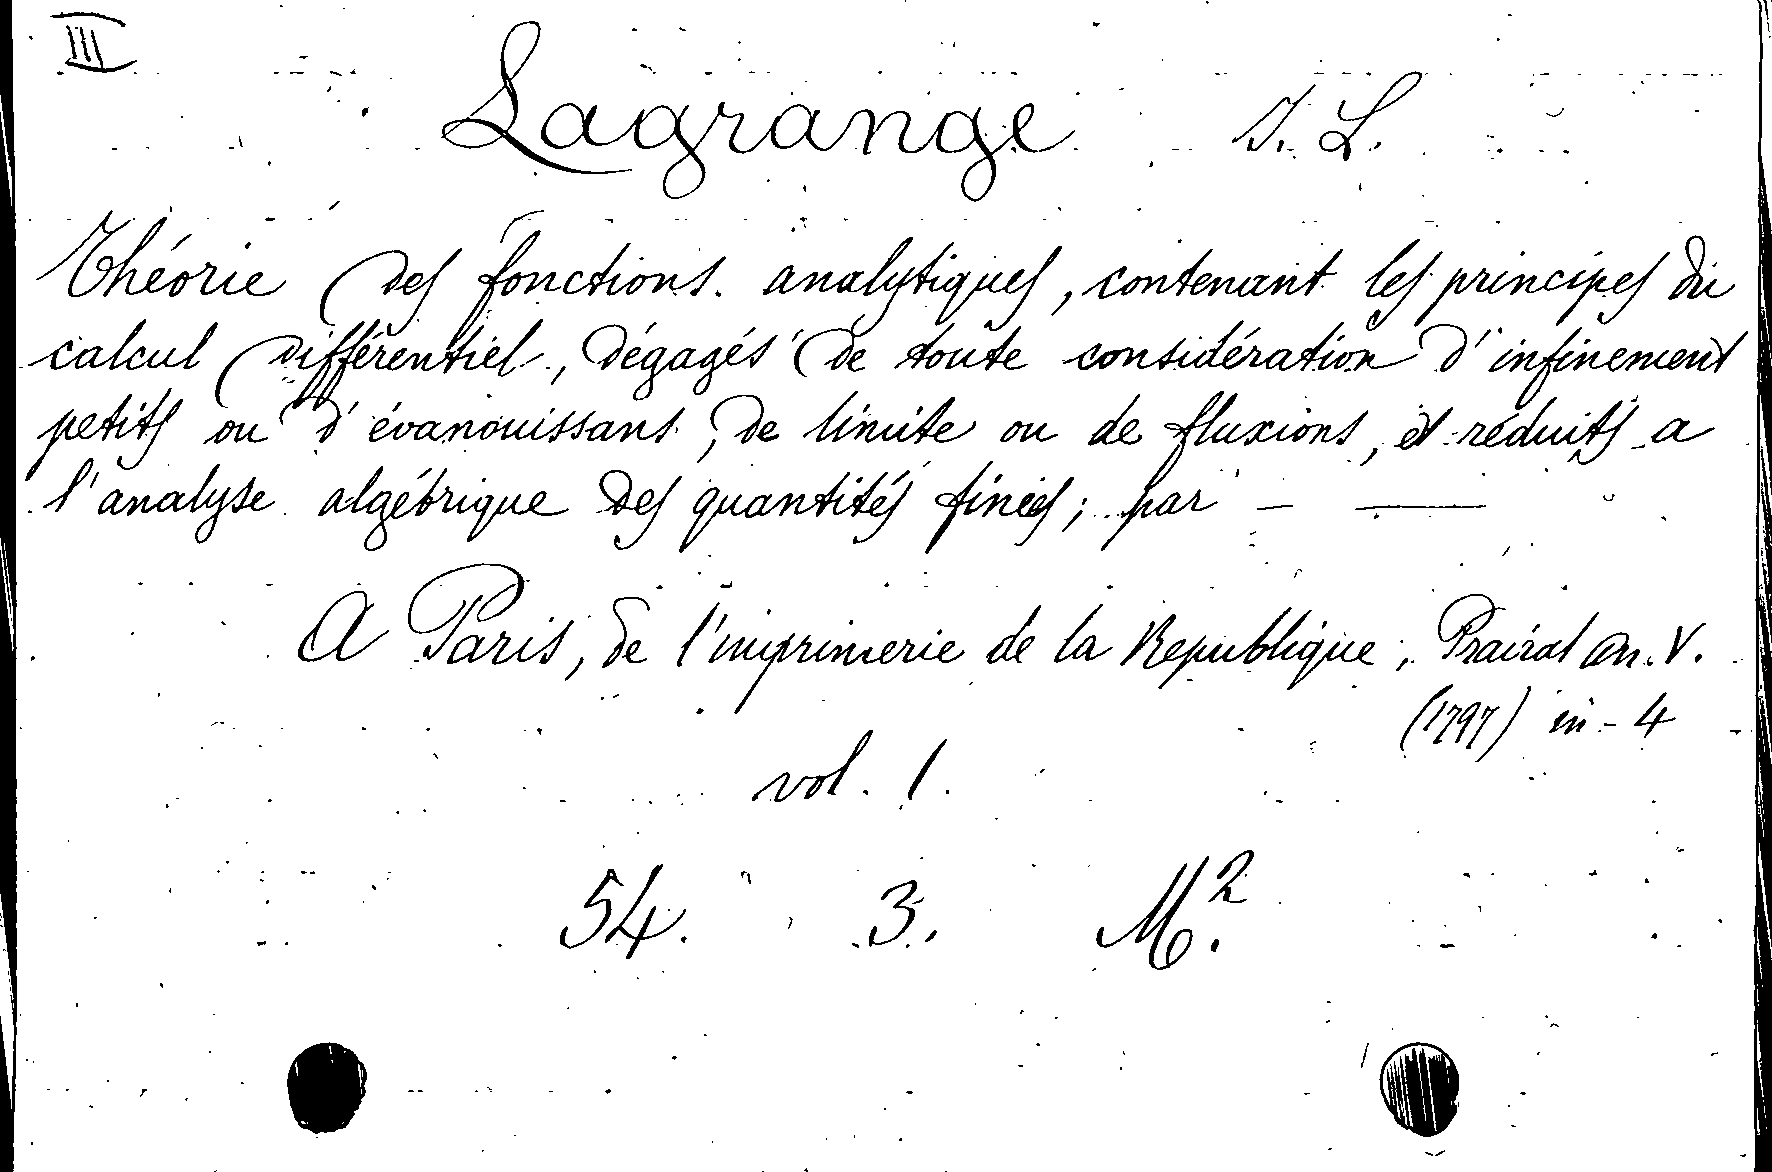 III
Lagrange J. L.
Théorie des fonctions analytiques, contenant les principes du
calcul différentiel, dégagés de toute considération d'infinement
petits ou d'évanouissans, de limite ou de fluxions, et réduits a
l'analyse algébrique des quantités finies; par — ——
A Paris, de l'imprimerie de la Republique, Prairal an. V.
(1797) in-4
vol. 1.
54. 3. M².